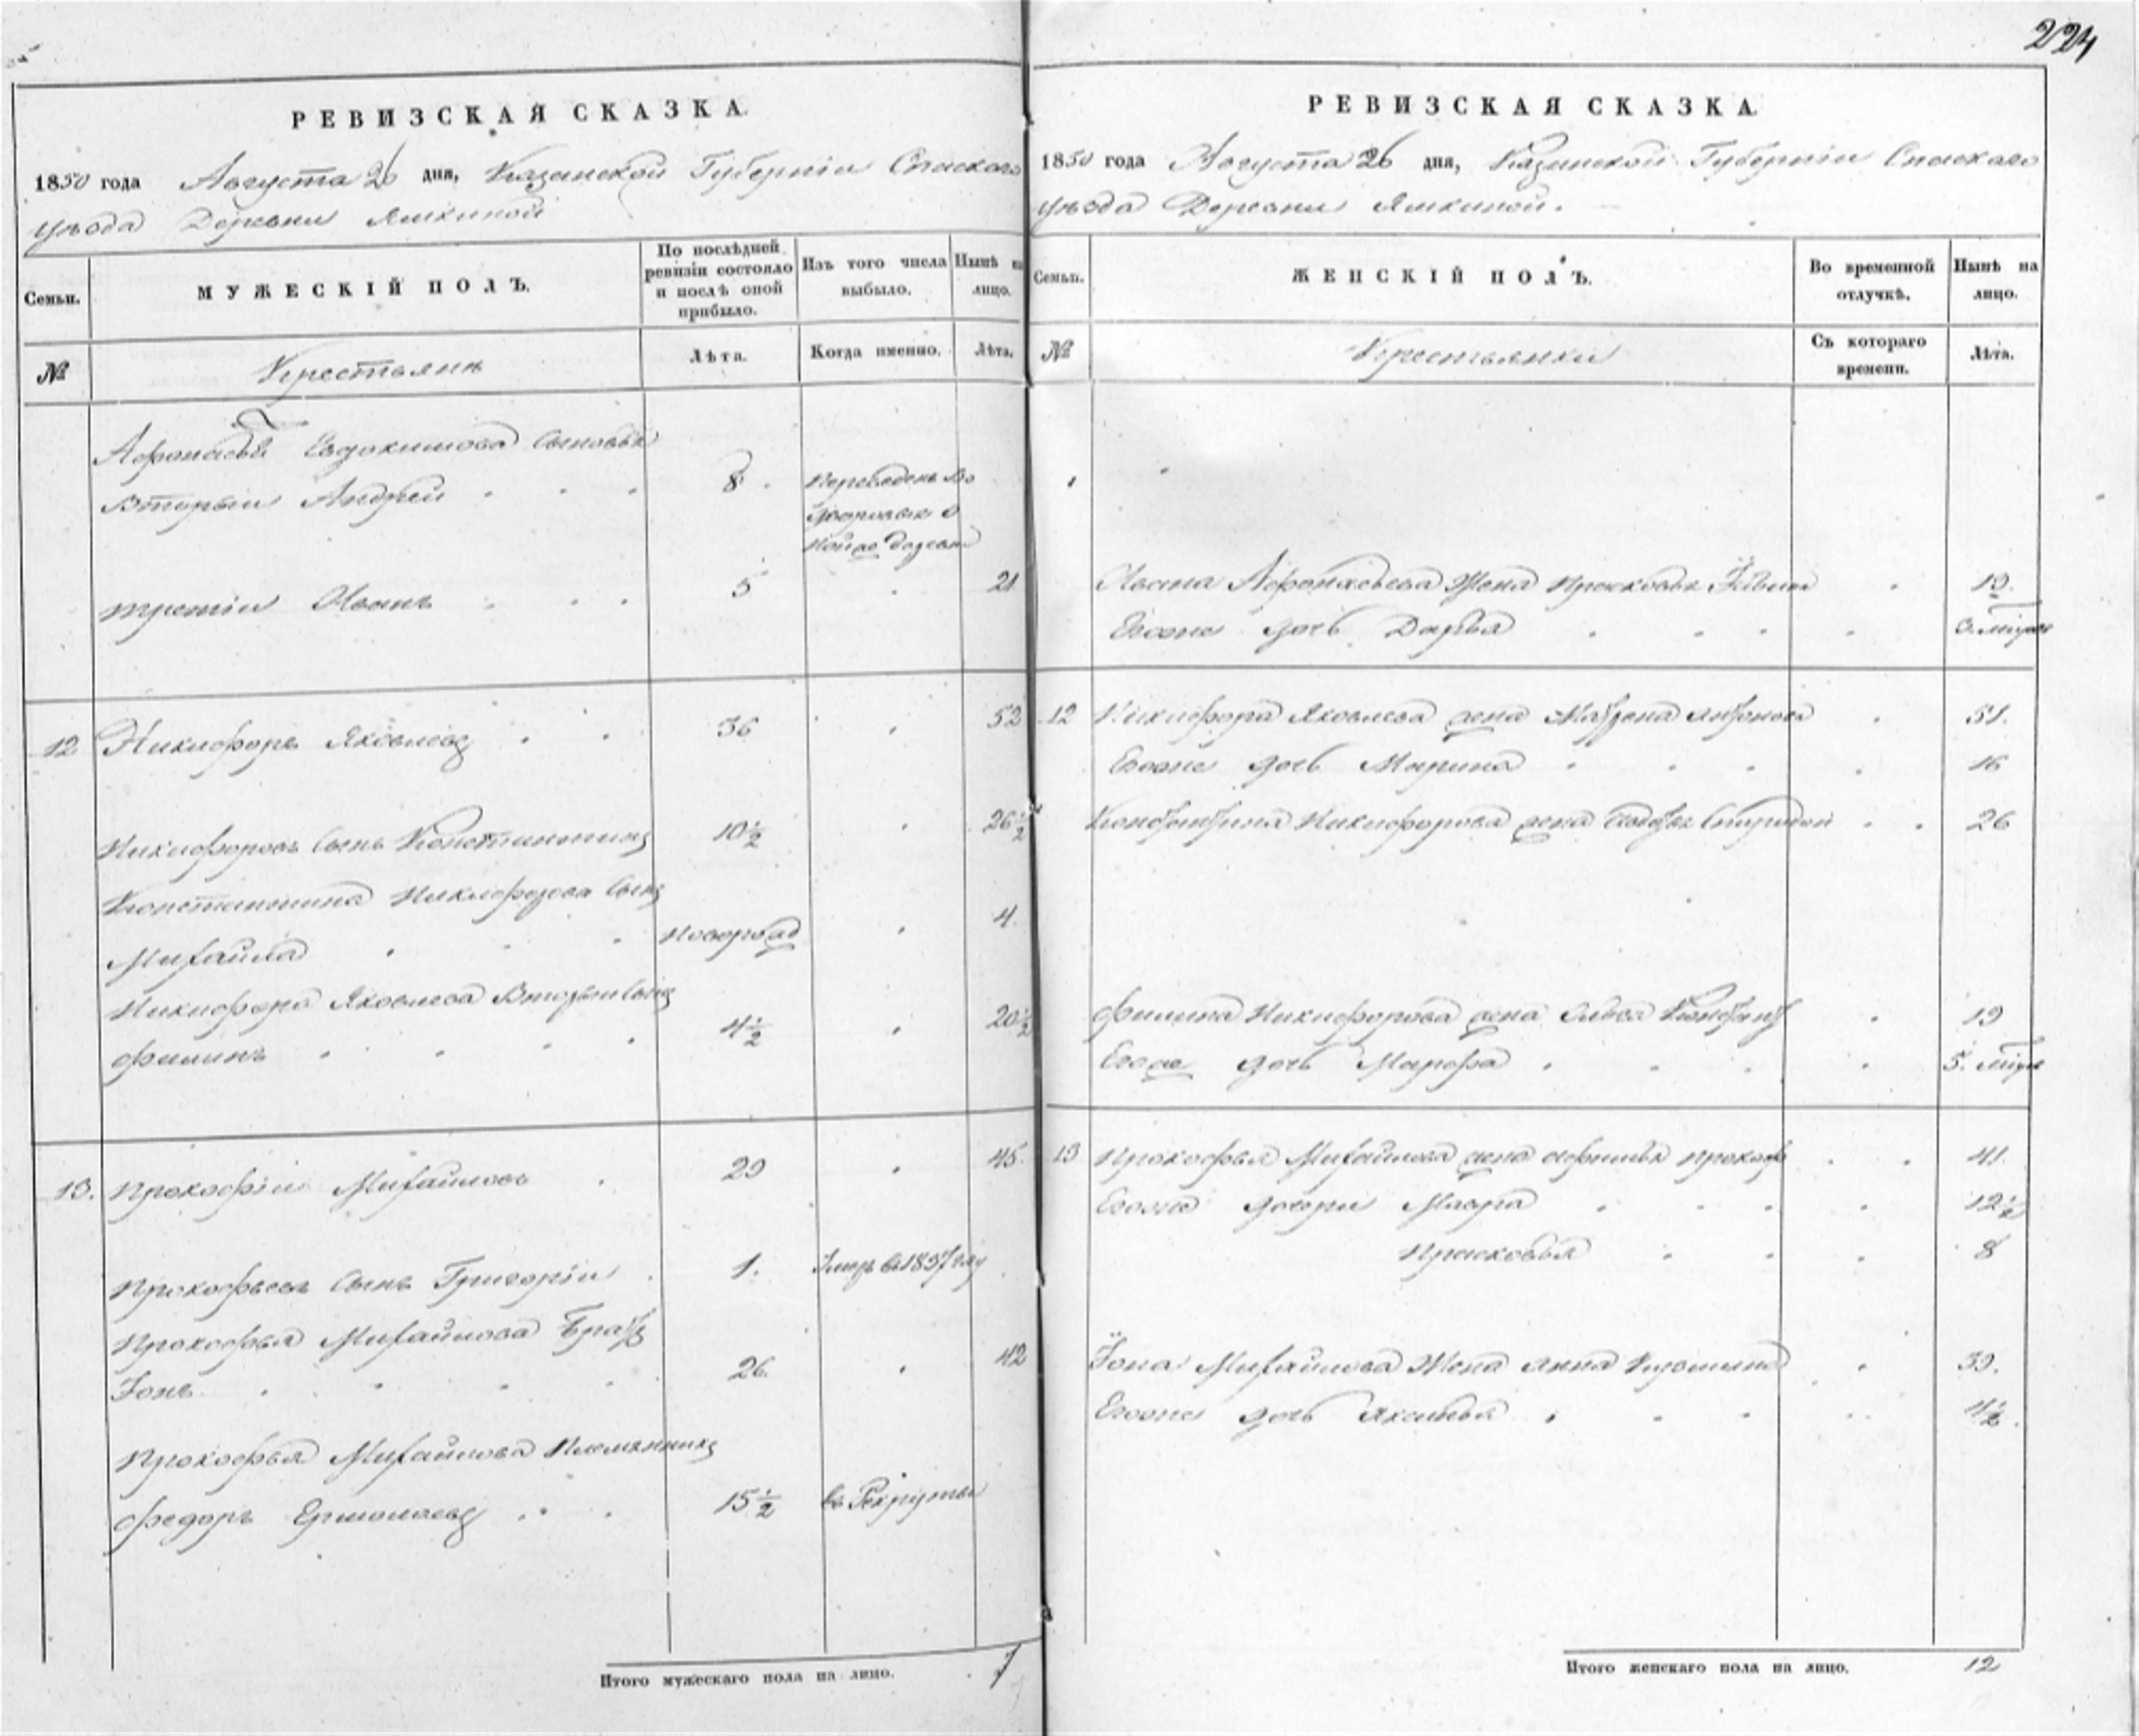 224
РЕВИЗСКАЯ СКАЗКА.
1850 года Августа 26 дня, Казанской Губерніи Спаскаго
уѣзда Деревни Ямкиной
Семьи.
МУЖЕСКІЙ ПОЛЪ.
По послѣдней
ревизіи состояло
и послѣ оной
прибыло.
Изъ того числа
выбыло.
Нынѣ на
лицо.
№
Крестьянъ
Лѣта.
Когда именно.
Лѣта.
Евдокимова Сыновья
вторый Андрей 8
третій Иванъ 5 21
12 Никифоръ Яковлевъ 36 52
Никифоровъ Сынъ Константинъ 10½ 26½
Константина Никифорова Сынъ
Михайла Новорожд 4
Никифора Яковлева Вторый Сынъ
Филипъ 4½ 20½
13. Прокофій Михайловъ 29 45
Прокофьевъ Сынъ Григорій 1. Умеръ въ 1837 году
Прокофья Михайлова Братъ
Іонъ 26 42
Прокофья Михайлова Племянникъ
Федоръ Ермолаевъ 15½ въ Рекруты
Итого мужескаго пола на лицо. 7
РЕВИЗСКАЯ СКАЗКА.
1850 года Августа 26 дня, Казанской Губерніи Спаскаго
уѣзда Деревни Ямкиной.
Семьи.
ЖЕНСКІЙ ПОЛЪ.
Во временной
отлучкѣ.
Нынѣ на
лицо.
№
Крестьянки
Съ котораго
времени.
Лѣта.
Ивана Жена Прасковья 19.
Евоне дочь Дарья
12 Никифора Яковлева жена Матрена Антонова 51.
Евоне дочь Марина 16
Константина Никифорова жена 26
Филипа Никифорова жена 19
дочь Марфа 5.
13 Прокофья Михайлова жена Прокоф 41.
дочери Мавра 12½
Прасковья 8
Іона Михайлова Жена Анна 39.
Евоне дочь Аксинья
Итого женскаго пола на лицо. 12